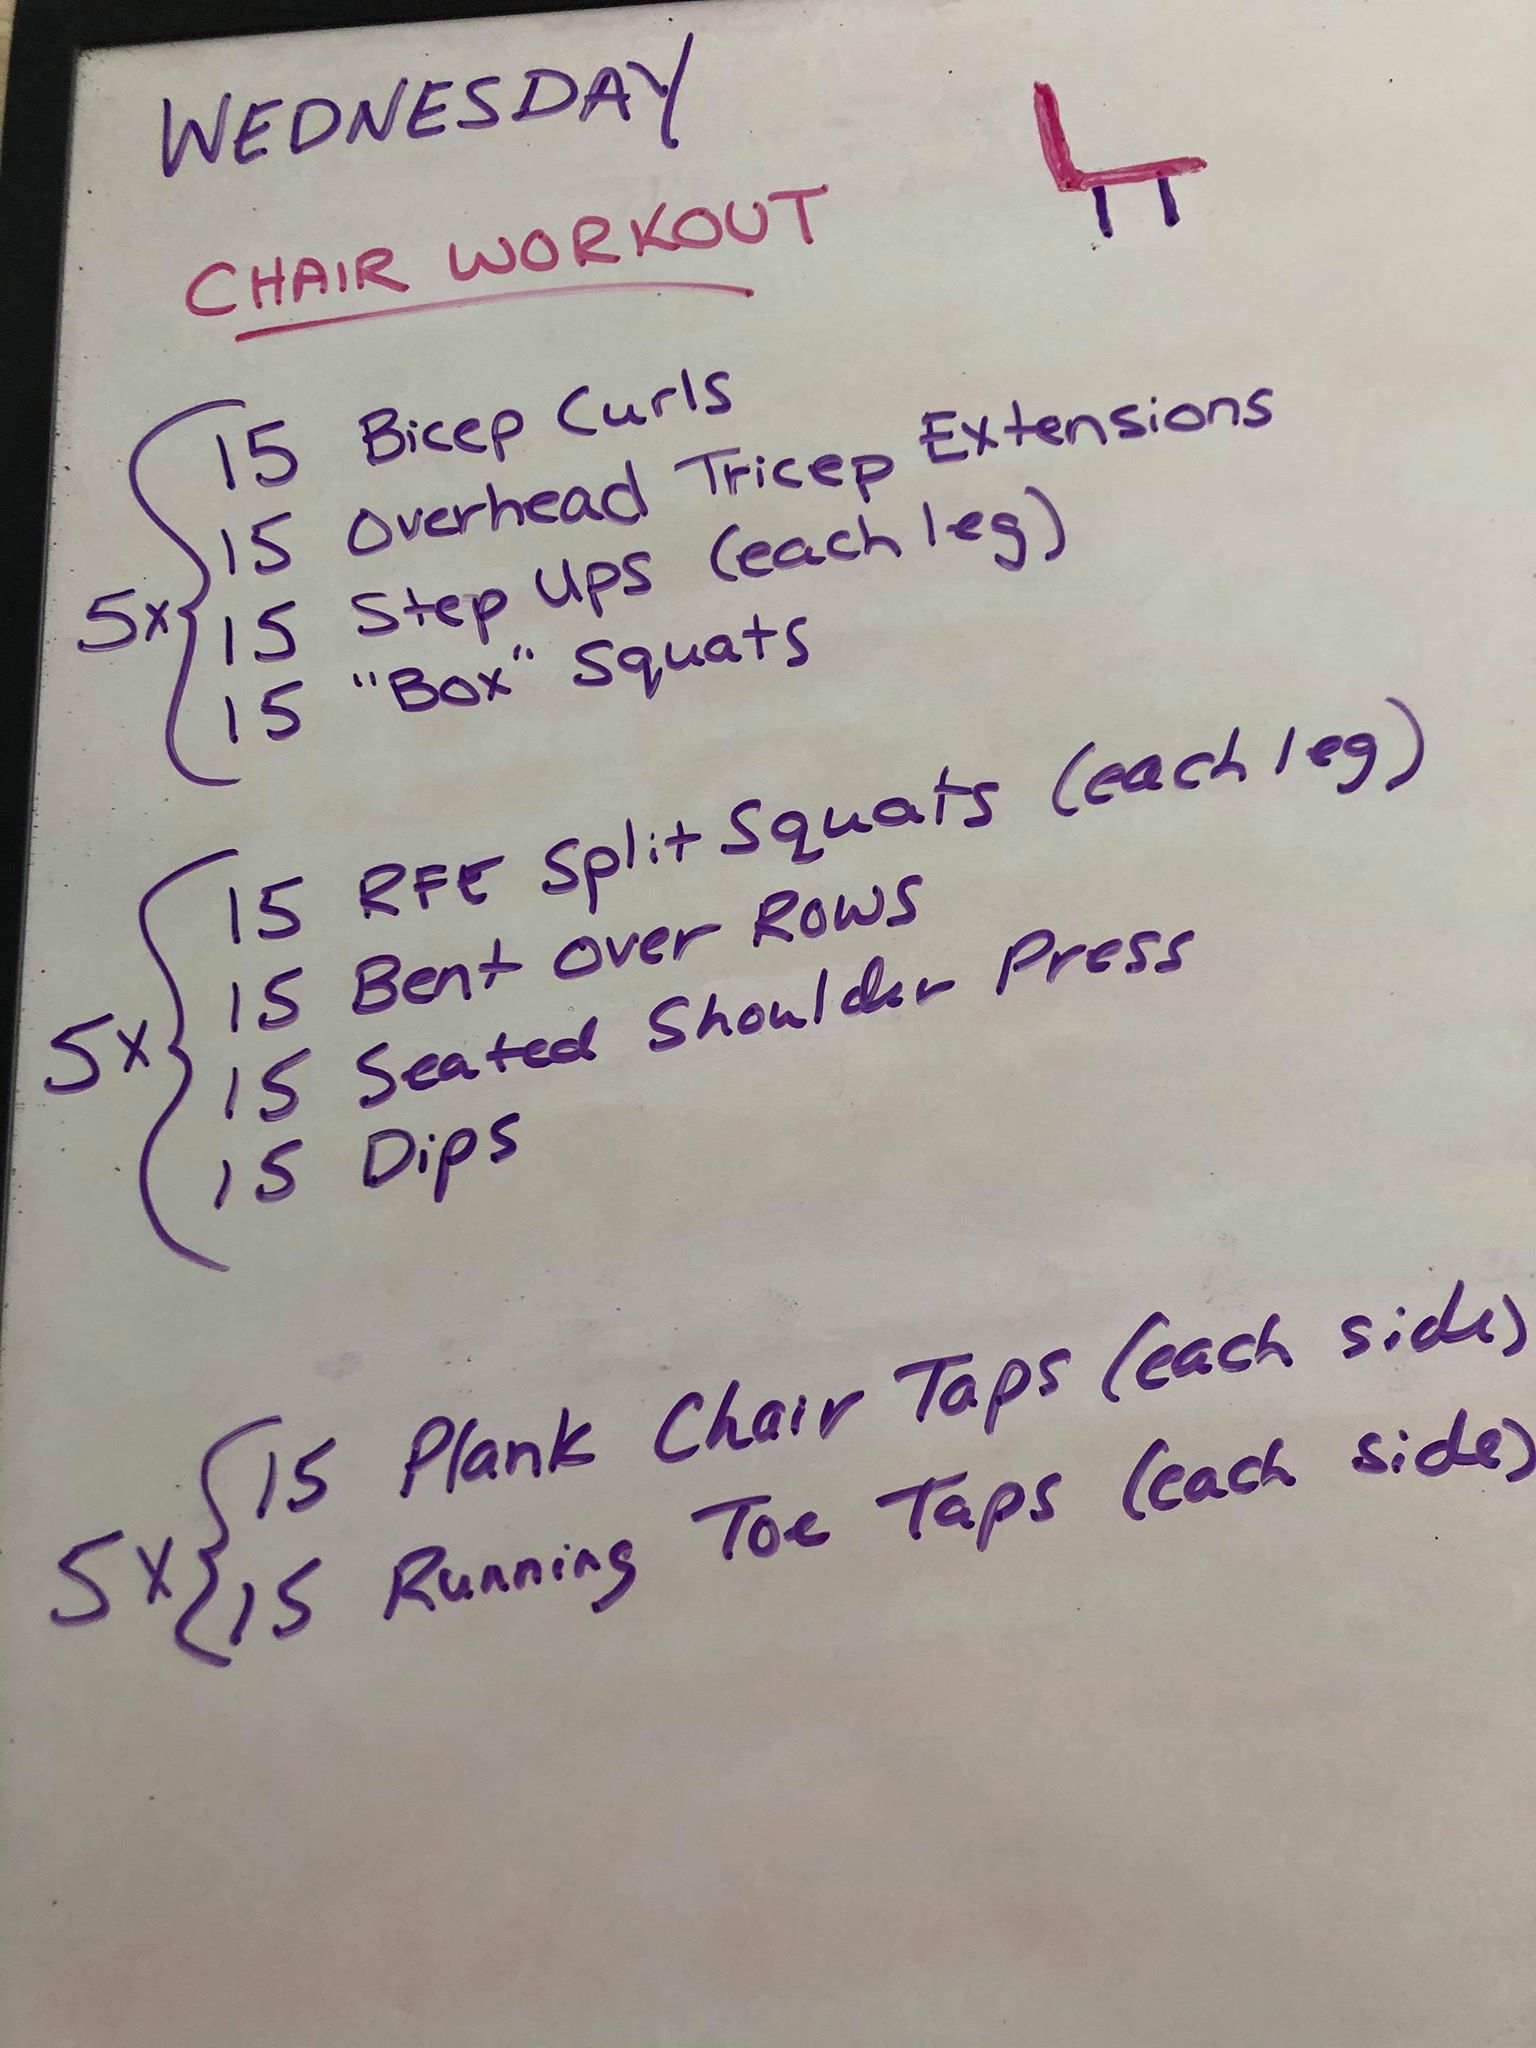 WEDNESDAY
CHAIR WORKOUT
15 Bicep Curls
15 Overhead Tricep Extensions
5x 15 Step Ups (each leg)
15 "Box" Squats
15 RFE Split Squats (each leg)
15 Bent Over Rows
5x 15 Seated Shoulder Press
15 Dips
15 Plank Chair Taps (each side)
5x 15 Running Toe Taps (each side)